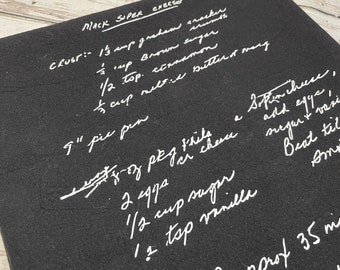 Mack Super Cheese
Crust:- 1 1/2 cup graham cracker
crumbs
1/4 cup Brown sugar
1/2 tsp. cinnamon
1/3 cup melted butter or marg
9" pie pan
8-oz pkg Phila
cr cheese
2 eggs
1/2 cup sugar
1/2 tsp vanilla
cheese,
add eggs,
sugar &
Beat til
35 mi